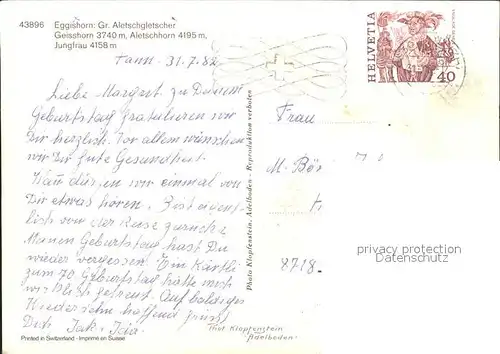 43896 Eggishorn: Gr. Aletschgletscher
Geisshorn 3740 m, Aletschhorn 4195 m,
Jungfrau 4158 m
Tann 31.7.82
Liebe Margrit zu Deinem
Geburtstag gratulieren wir
Dir herzlich. Vor allem wünschen
wir Dir gute Gesundheit.
wir einmal von
Dir etwas hören. Bist eigent-
lich von der Reise zurück.
Meinen Geburtstag hast Du
wieder vergessen. Ein Kärtli
zum 70. Geburtstag hätte mich
gefreut. Auf baldiges
Wiedersehn hoffend grüsst
Dich
Printed in Switzerland - Imprimé en Suisse
Photo Klopfenstein, Adelboden - Reproduktion verboten
HELVETIA
40
Frau
M. Bös
8718
Thut Klopfenstein
Adelboden
privacy protection
AnsichtskartenVersand.com